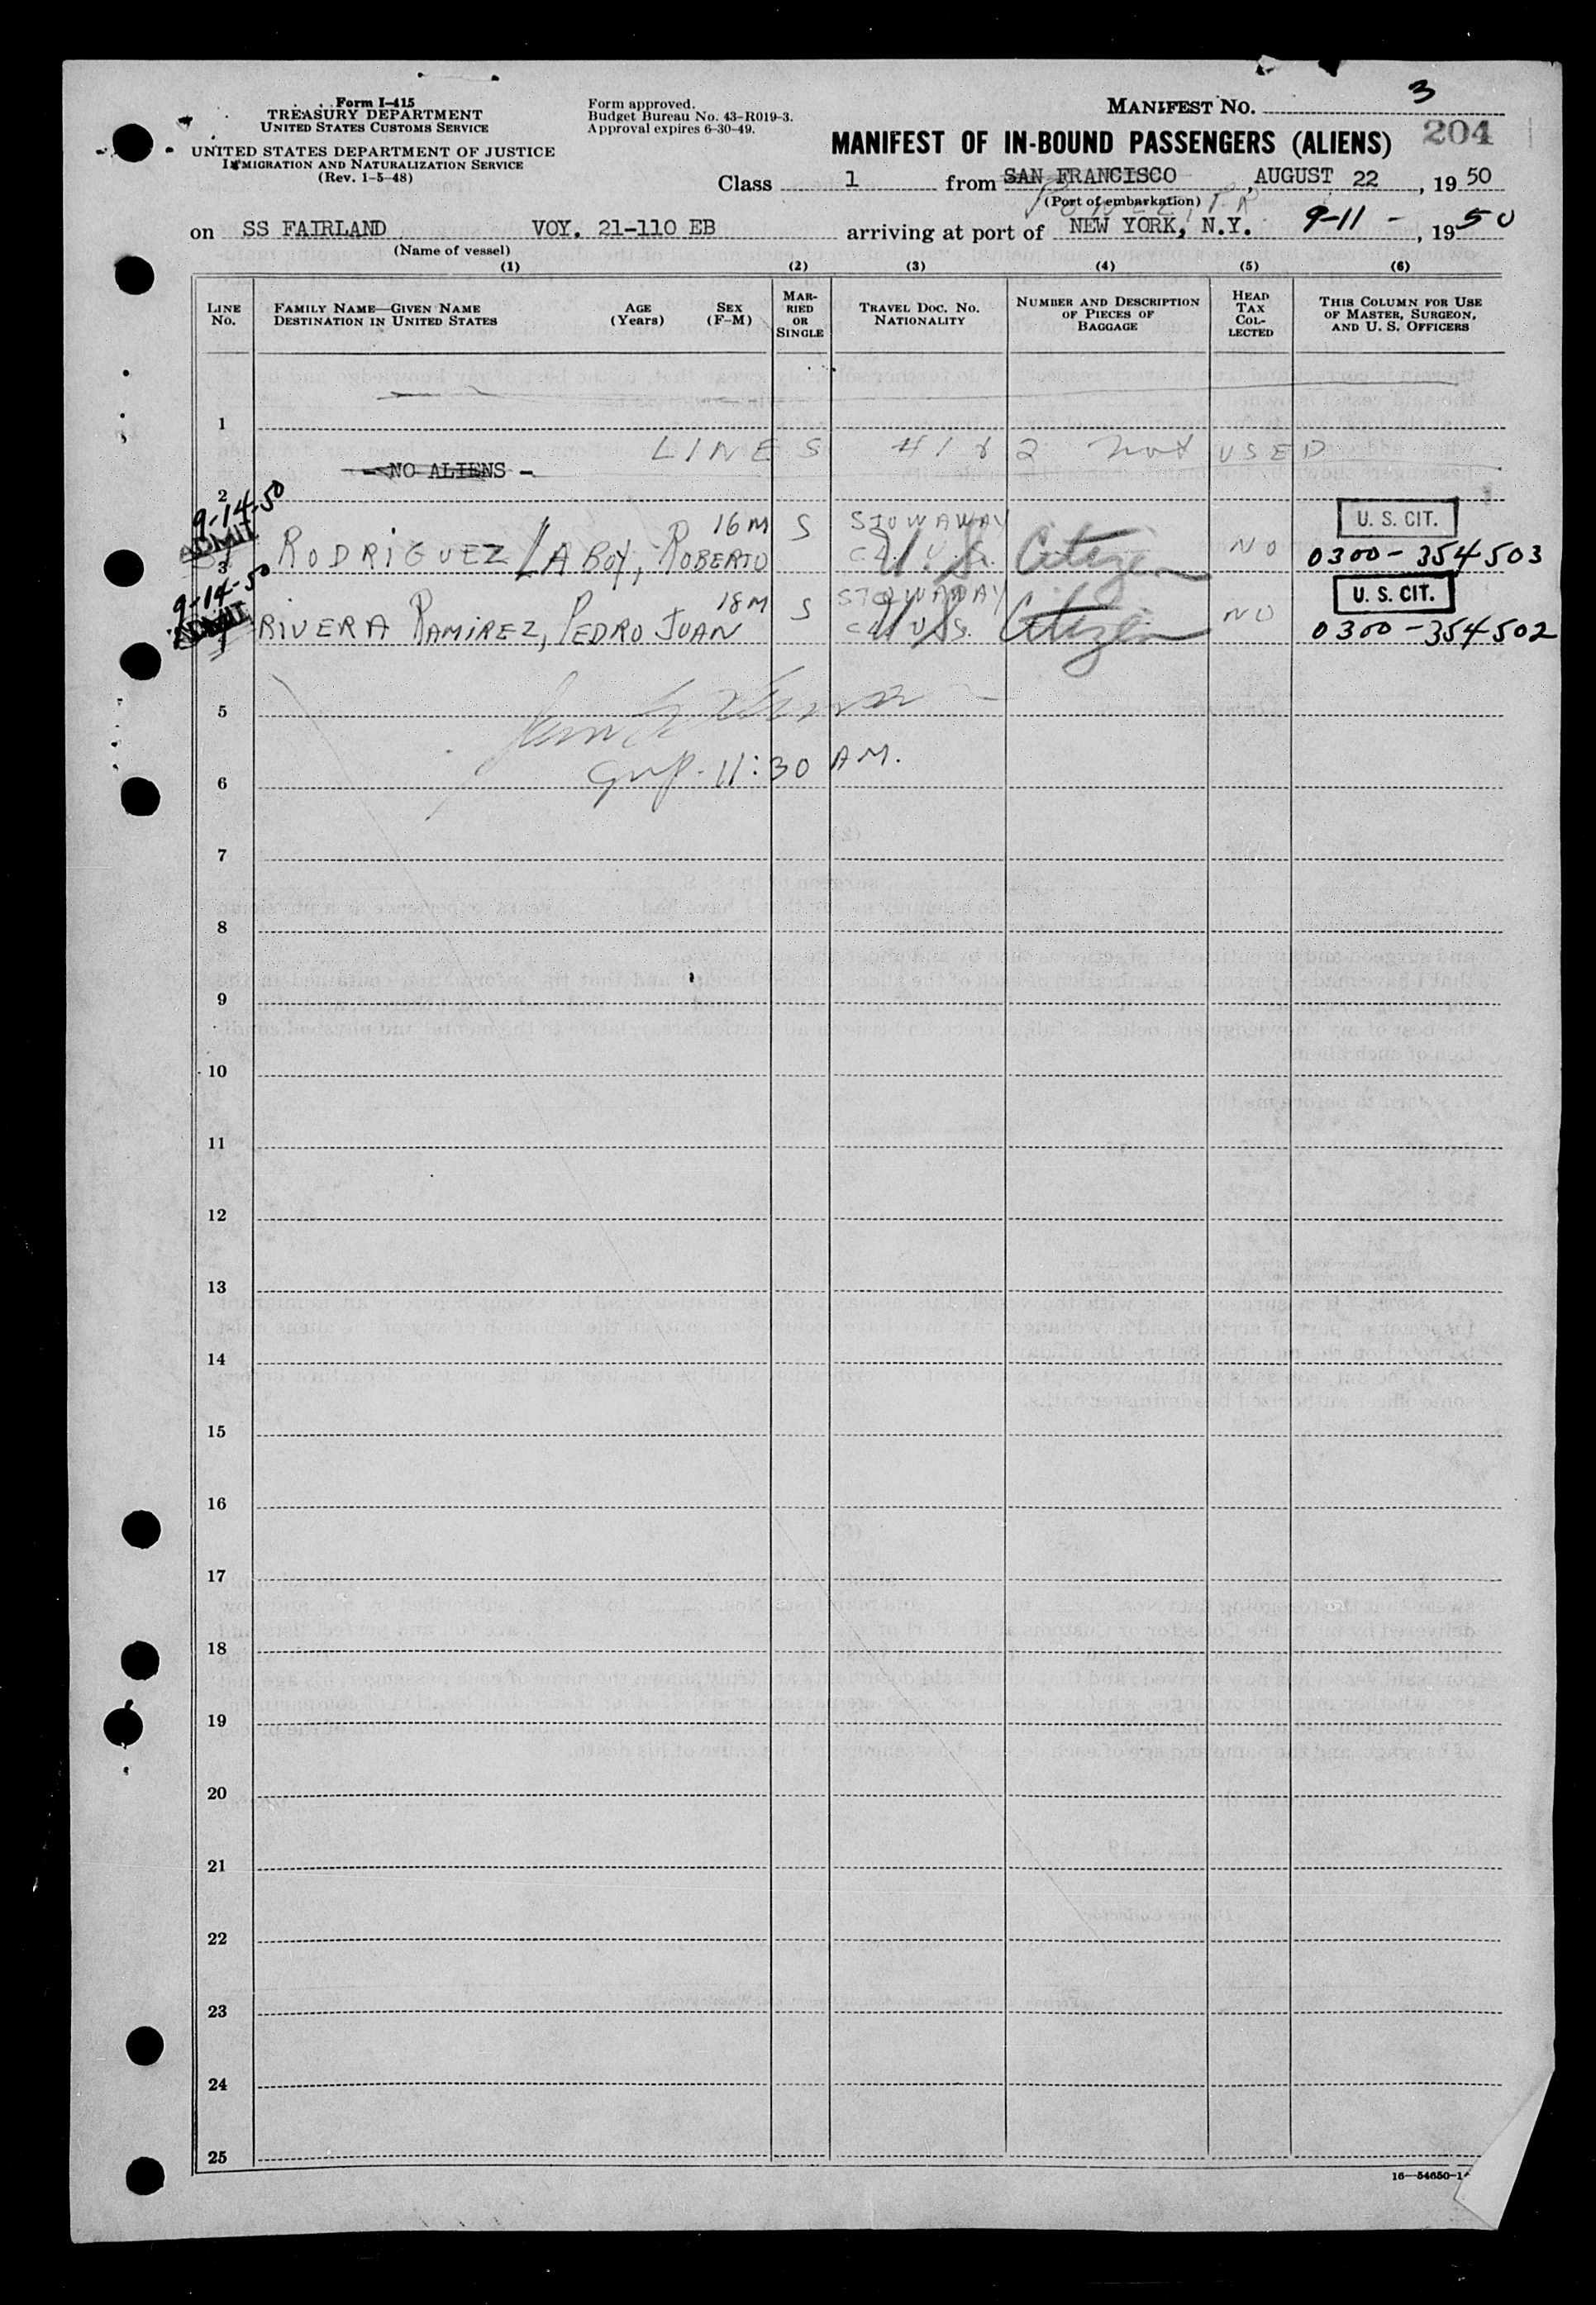 Form I-415
TREASURY DEPARTMENT
UNITED STATES CUSTOMS SERVICE
UNITED STATES DEPARTMENT OF JUSTICE
IMMIGRATION AND NATURALIZATION SERVICE
(Rev. 1-5-48)
Form approved.
Budget Bureau No. 43-R019-3.
Approval expires 6-30-49.
MANIFEST NO. 3
MANIFEST OF IN-BOUND PASSENGERS (ALIENS) 204
Class 1 from SAN FRANCISCO, AUGUST 22, 1950
(Port of embarkation)
PONCE, P.R.
on SS FAIRLAND VOY. 21-110 EB arriving at port of NEW YORK, N.Y. 9-11-, 1950
(Name of vessel)
(1) (2) (3) (4) (5) (6)
LINE No. FAMILY NAME—GIVEN NAME DESTINATION IN UNITED STATES AGE (Years) SEX (F-M) MARRIED OR SINGLE TRAVEL DOC. No. NATIONALITY NUMBER AND DESCRIPTION OF PIECES OF BAGGAGE HEAD TAX COLLECTED THIS COLUMN FOR USE OF MASTER, SURGEON, AND U. S. OFFICERS
1
LINES #1 & 2 not USED
- NO ALIENS -
2
9-14-50
ADMIT
16 M S STOWAWAY U. S. CIT.
3 RODRIGUEZ LABOY, ROBERTO U.S. Citizen NO 0300-354503
9-14-50
ADMIT
18 M S STOWAWAY U. S. CIT.
RIVERA RAMIREZ, PEDRO JUAN U.S. Citizen NO 0300-354502
5
11:30 A.M.
6
7
8
9
10
11
12
13
14
15
16
17
18
19
20
21
22
23
24
25
16—54650-1